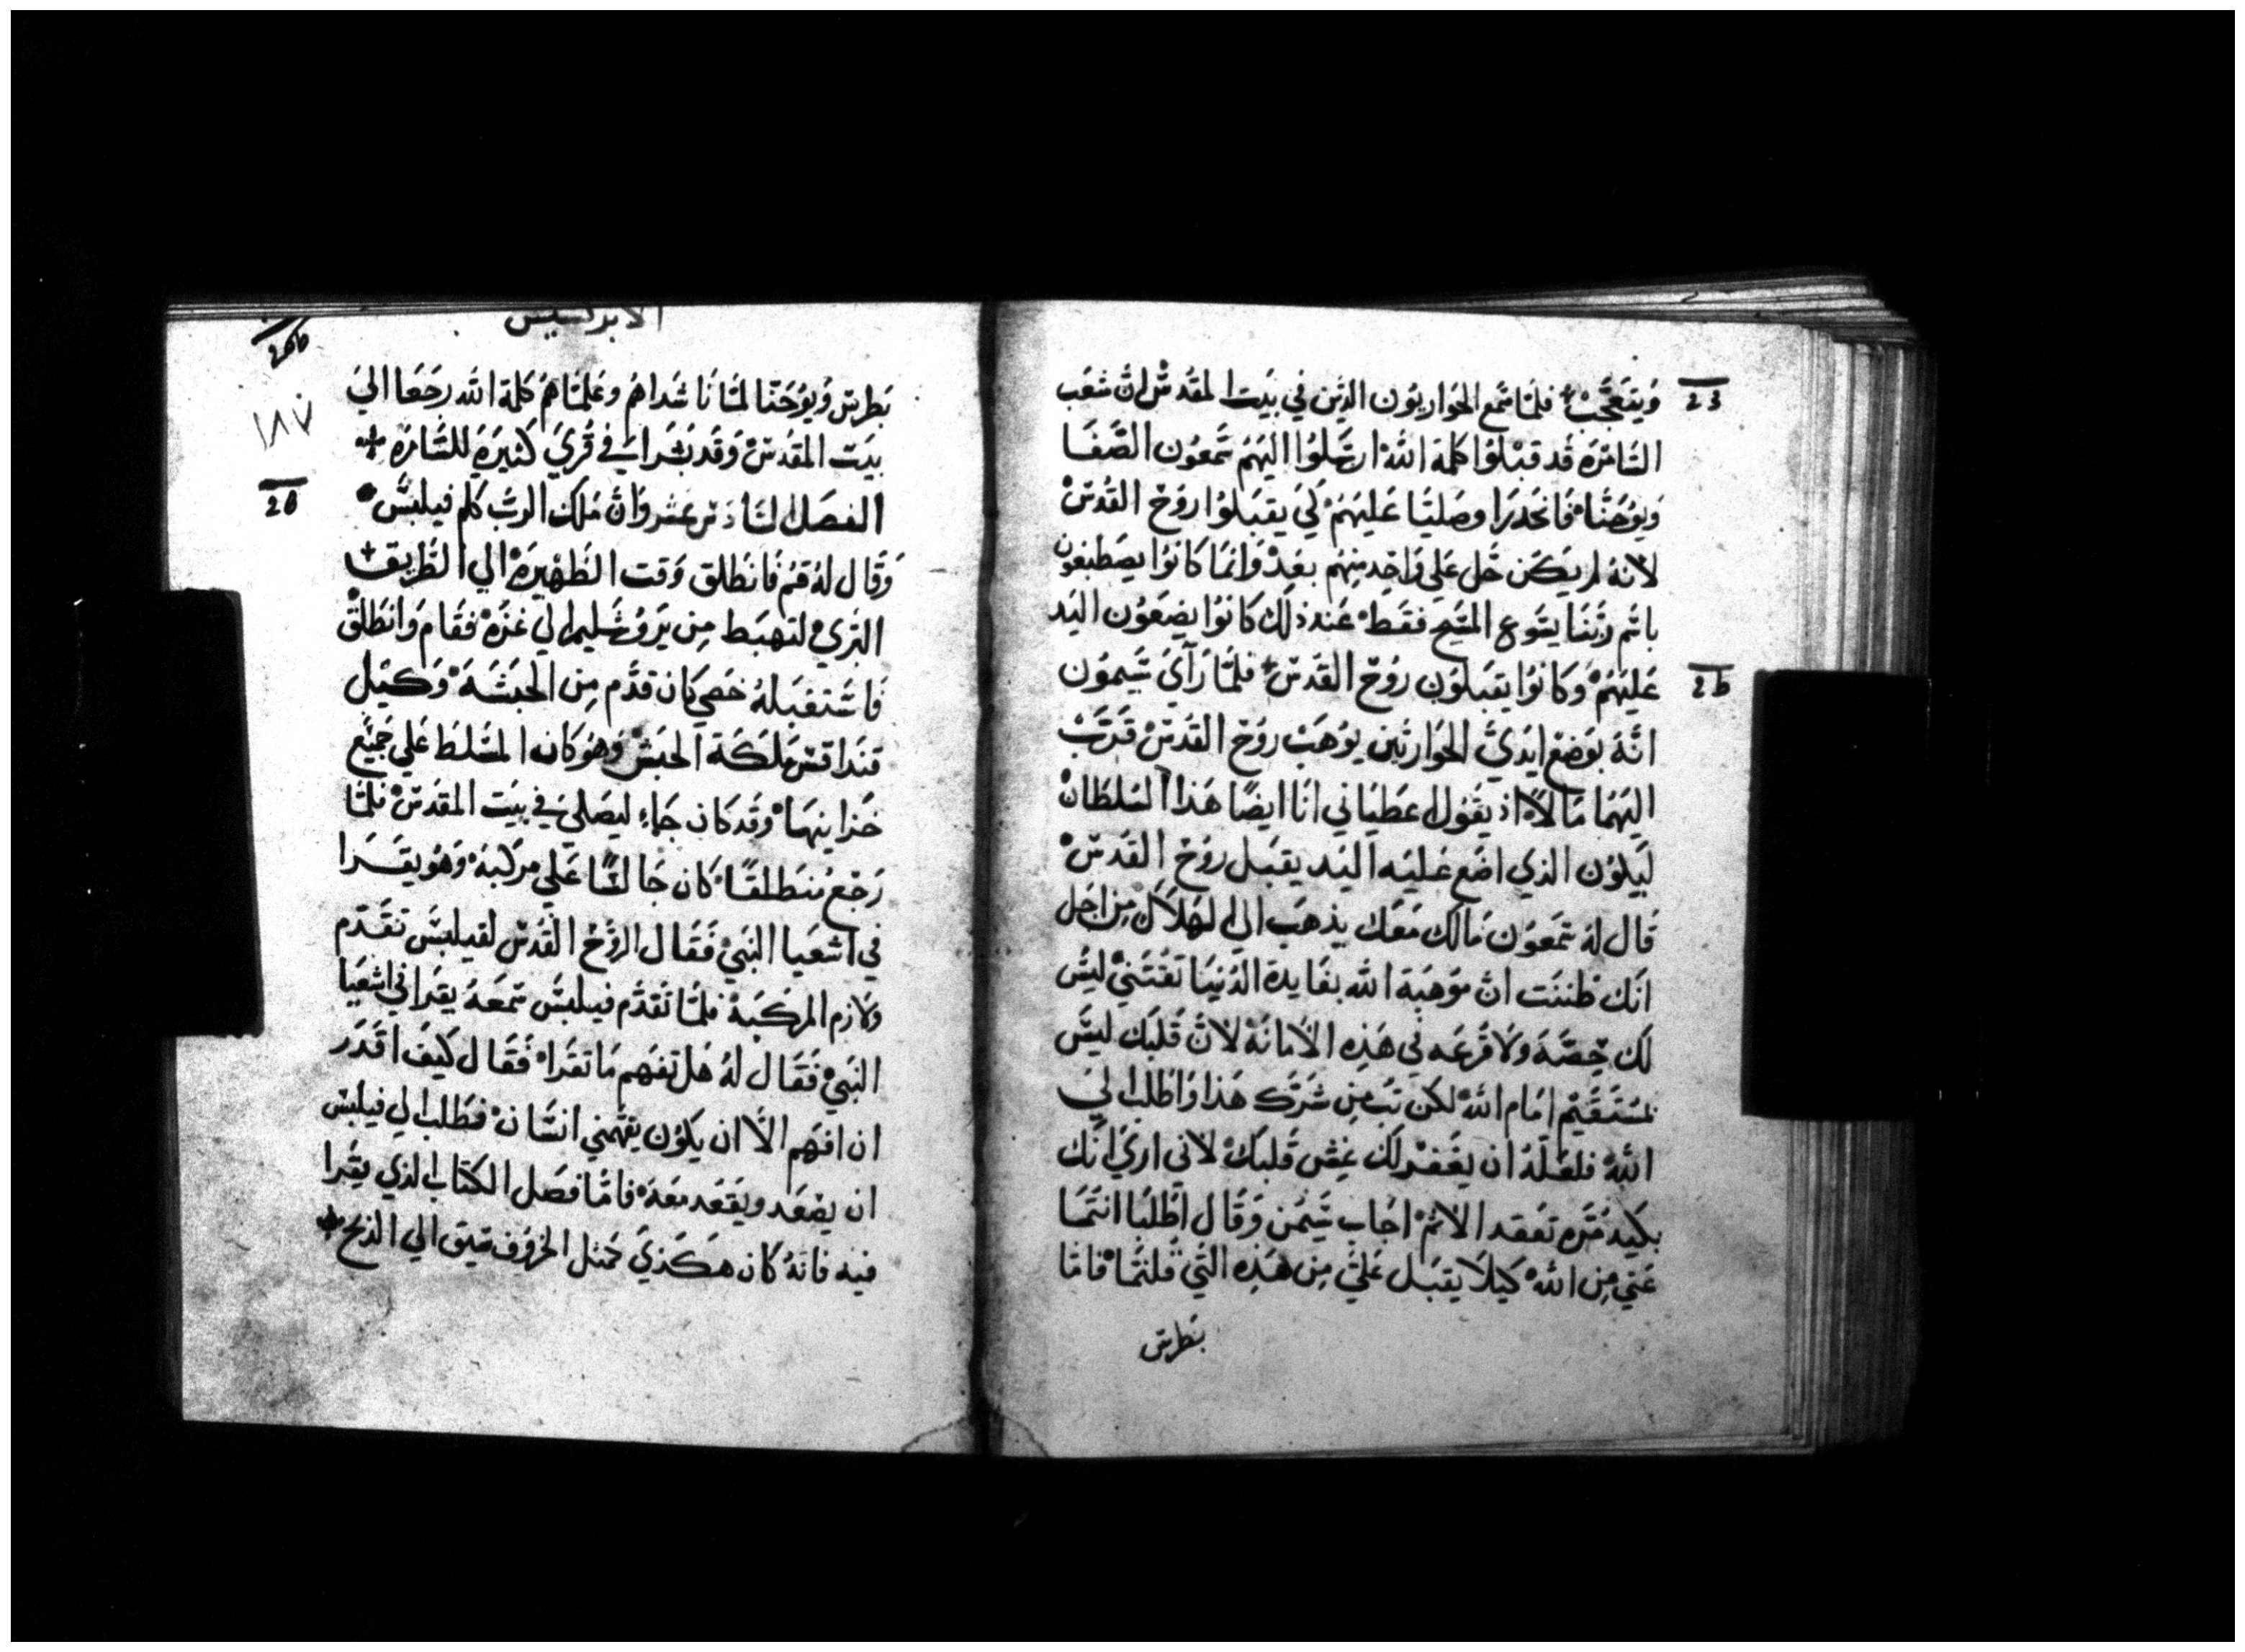 وَيتعَجَّبْ فلمّا سَمع الحَواريّون الذين في بَيت المقدسْ انَّ شعَب
السَّامَرَةِ قَد قَبْلوُا كلمة اللهْ ارسَلوُا اليَهمُ سَمعُون الصَّفَا
وَيوُحَنّاْ فَانحَدرَا وصَليّا عَليهَمُ كَيَ يقبَلوُا روُحَ القدُسْ
لانهُ لم يَكَن حَل عَلي وَاحِد منِهُم بعَدْ وَانما كَانوُا يصَطبغون
باسْم رَبنَا يسَوع المسَيح فقَطْ عَند ذلك كَانوُا يضَعوُن اليَد
عَليَهمُ وَكَانوُا يَقبَلوُن روُحَ القدَسْ فلمّا رَآيَ سَيموُن
انّهُ بوَضع ايديَّ الحَوارييَن يوُهَبْ روُحَ القدُسْ قَرّبْ
اليَهمَا مَالاً اذ يقوُل اعَطيَاني انَا ايضًا هَذا السُلطَانْ
ليَكوُن الذي اضَع عَليَه اليَد يقبَل روُحَ القدَسْ
قَال لهُ سَمعوُن مَالك مَعَك يذهَب الي الهَلاَك منِ اجَل
انَك ظننَت انَّ موَهبَة الله بفَايدة الدُنيَا تقُتَنيْ ليسَ
لك حِصّةَ وَلا قُرعَه في هَذِهِ الاَمانهْ لانَّ قَلبَك ليسَ
بمسُتَقَيمْ امَام اللهْ لكن تُب منِ شَرّك هَذا وَاطلب الي
اللهْ فلعَلّهُ ان يغَفر لَك غِش قَلبَكْ لانّي اريَ انَّك
بكَيد مُرّه تعُقد الاثمْ اجَاب سَيمُن وَقَال اطلبَا انتمَا
عَني منِ اللهْ كَيلاَ يقبَل عَليّ منِ هَذِهِ التيّ قلتمَا فامّا
بطرس
23
25
الابركسيس
بَطرس وَيوُحَنّا لمّا نَاشَداهمُ وعَلّمَاهمُ كَلمة الله رجَعَا الي
بيَت المقدُسْ وَقَد بَشرَا في قُريَ كَثيَرةِ للسَّامَرَهِ
الفصَل السَّادسْ عَشر وَانَّ مَلَاك الربّ كلم فيلبسَّ
وَقَال لهُ قمُ فَانطَلق وَقت الظَهيَرهْ الي الطَريق
البَريّ لتهَبط منِ يَروُشَليم الي غزّهْ فقَام وَانطَلقْ
فَاسْتقبَلهُ خَصي كَان قدَّم منِ الحَبشَهَ وَكَيَل
قندَاقسْ مَلكَة الحبَشْ وَهوُ كَان المسَّلط عَلي جَميعَ
خَزاينهَاْ وَقد كَان جَاء ليصَلي في بَيت المقدسْ فلمّا
رَجَع مُنطَلقًا كَان جَالسًّا عَلي مركَبهْ وَهوُ يقَرا
في اشعَيا النبَيْ فَقَال الروُّحْ القدُسْ لفيلبسّ تقَدّم
وَلازم المركَبهْ فلمّا تَقدّم فيلبسَّ سَمعَهُ يقَرا في اشعَيَا
النَبيّ فَقَال لهُ هَل تفَهم مَا تقَراْ فَقَال كَيفَ اقَدَر
ان افَهم الَّا ان يكوُن يفهّمني انسَّانْ فطَلب الي فيلبسّ
ان يصَعَد ويقَعَد معَهْ فامّا فصَل الكتاب الذي يقَرا
فيه فانهُ كَان هَكَذيَ كَمثل الخرَوُف سَيق الي الذبح
26
١٨٧